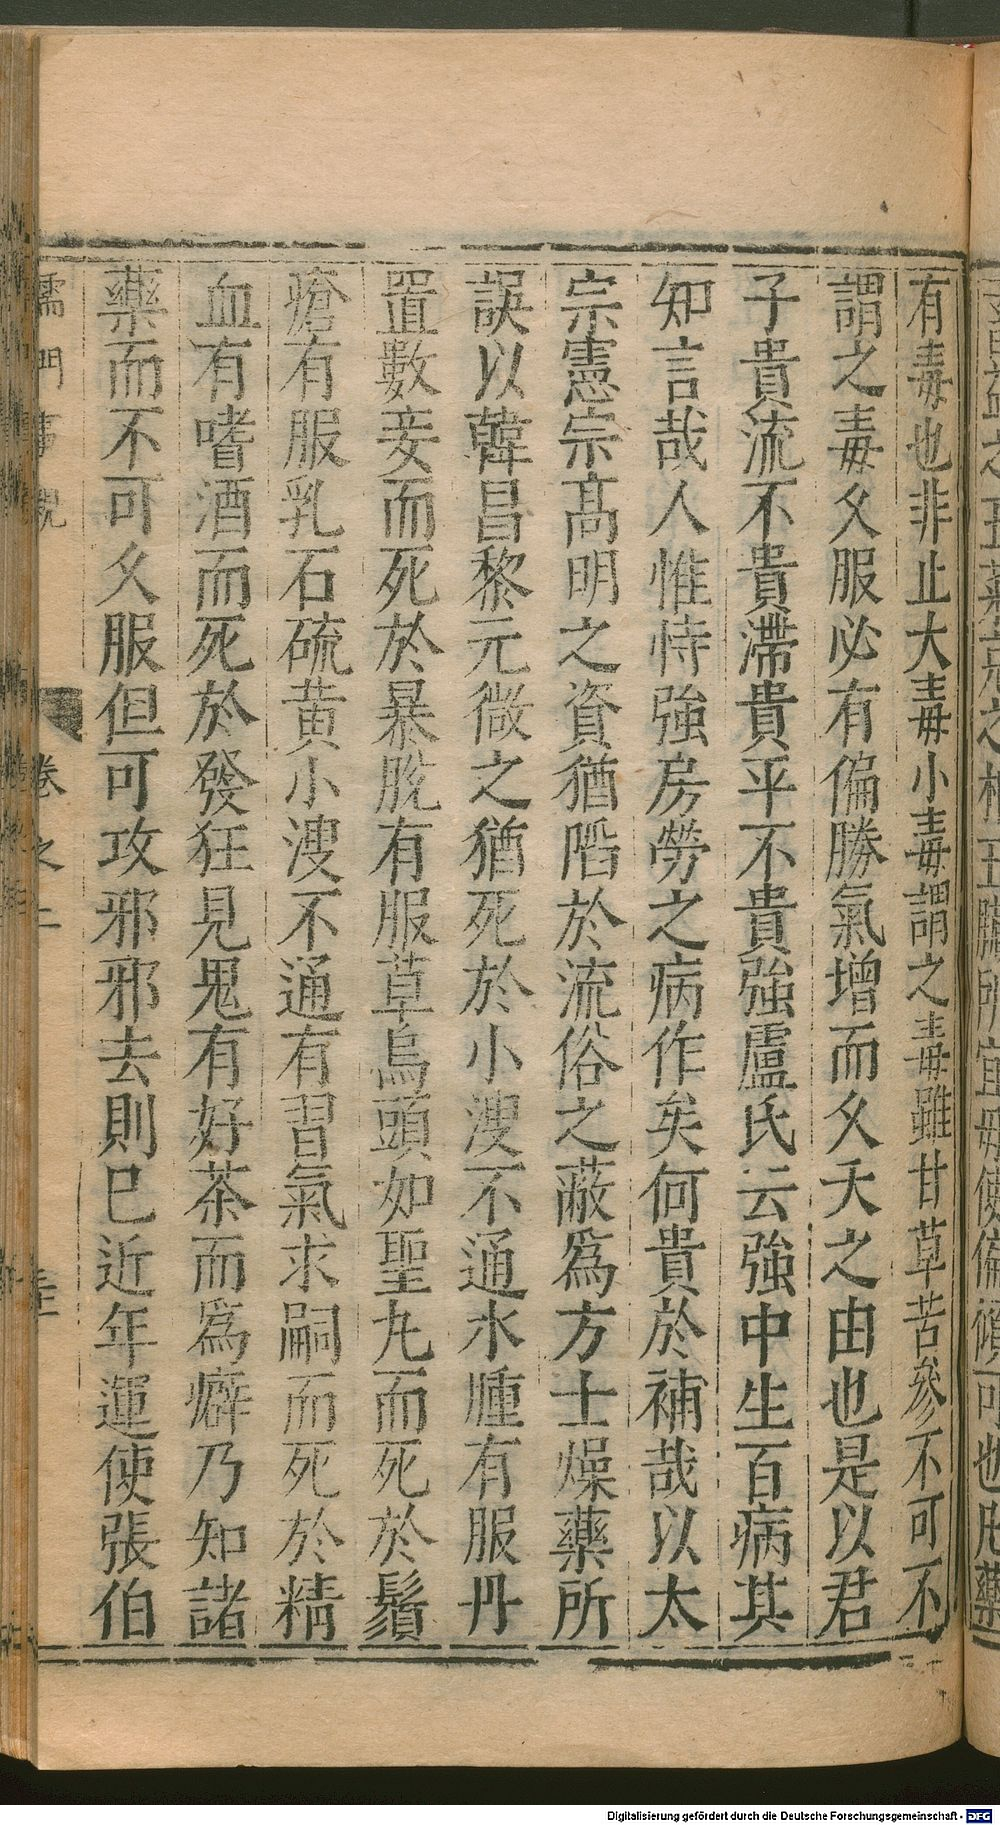 有毒也非止大毒小毒謂之毒雖甘草苦參不可不
謂之毒久服必有偏勝氣增而久夭之由也是以君
子貴流不貴滯貴平不貴強盧氏云強中生百病其
知言哉人惟恃強房勞之病作矣何貴於補哉以太
宗憲宗高明之資猶陷於流俗之蔽為方士燥藥所
誤以韓昌黎元微之猶死於小溲不通水腫有服丹
置數妾而死於暴脫有服草烏頭如聖丸而死於鬚
瘡有服乳石硫黃小溲不通有習氣求嗣而死於精
血有嗜酒而死於發狂見鬼有好茶而為癖乃知諸
藥而不可久服但可攻邪邪去則已近年運使張伯
儒門事親 卷之二
Digitalisierung gefördert durch die Deutsche Forschungsgemeinschaft - DFG